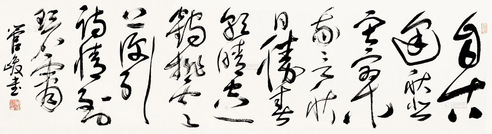 自古
逢秋悲
寂寥
我言秋
日勝春
朝晴空一
鶴排雲
上便引
詩情到
碧霄
管峻書